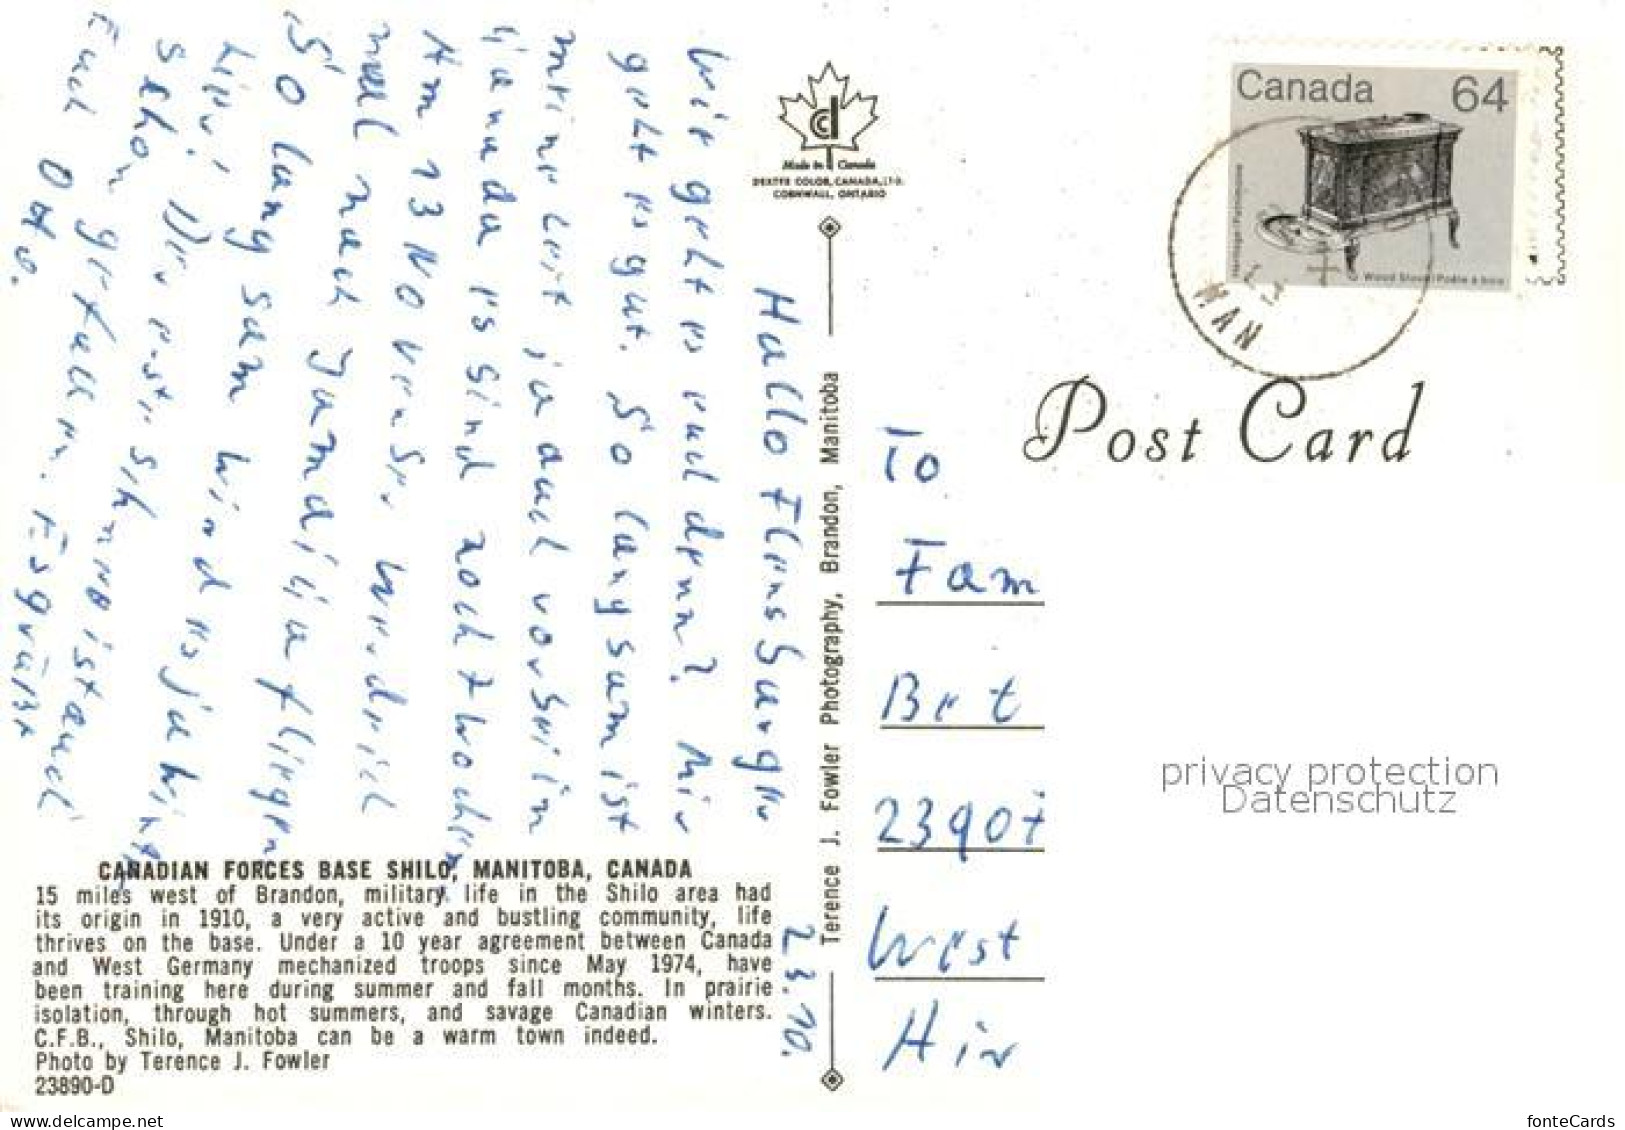 Hallo Flensburger
23.10.
Wie geht es euch denn? Mir
geht es gut. So langsam ist
meine Zeit ja auch vorbei in
Kanada es sind noch 7 Wochen
Am 13 November werde ich
mal nach
So langsam wird es ja hier
schon
Der erste Schnee ist auch
schon gefallen. Es grüßt
Euch Otto.
CANADIAN FORCES BASE SHILO, MANITOBA, CANADA
15 miles west of Brandon, military life in the Shilo area had
its origin in 1910, a very active and bustling community, life
thrives on the base. Under a 10 year agreement between Canada
and West Germany mechanized troops since May 1974, have
been training here during summer and fall months. In prairie
isolation, through hot summers, and savage Canadian winters.
C.F.B., Shilo, Manitoba can be a warm town indeed.
Photo by Terence J. Fowler
23890-D
Made in Canada
DEXTER COLOR, CANADA, LTD.
CORNWALL, ONTARIO
Terence J. Fowler Photography, Brandon, Manitoba
Canada 64
Heritage / Patrimoine
Wood Stove / Poêle à bois
MAN
Post Card
To
Fam
Bet
2390
West
privacy protection
Datenschutz
www.delcampe.net
fonteCards